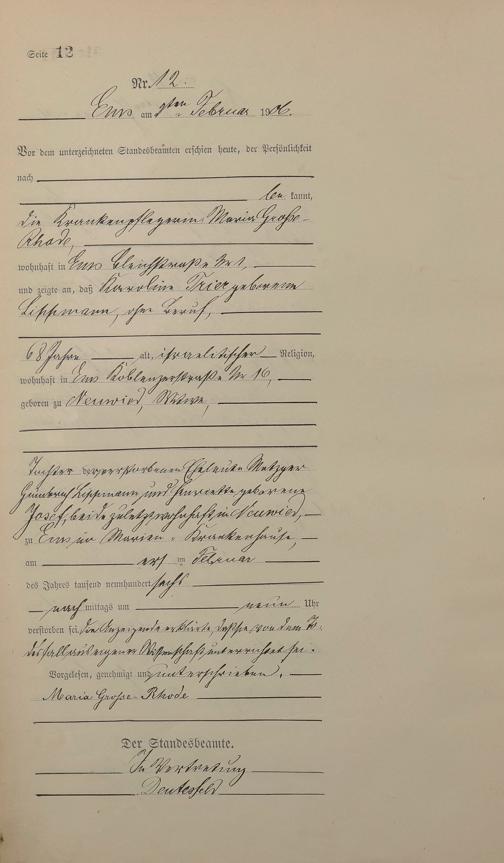 Seite 12
Nr. 12.
Ems am ten Februar 1906.
Vor dem unterzeichneten Standesbeamten erschien heute, der Persönlichkeit
nach
be kannt,
die Krankenpflegerin Maria Große-
Rhode,
wohnhaft in Ems Bleichstraße Nr 1,
und zeigte an, daß Karoline Trier geborene
Lippmann, ohne Beruf,
68 Jahre alt, israelitischer Religion,
wohnhaft in Ems Koblenzerstraße Nr 16,
geboren zu Neuwied, Witwe,
Tochter der verstorbenen Eheleute Metzger
Lippmann und Henriette geborene
Josef, beide zuletzt wohnhaft in Neuwied,
zu Ems im Marien-Krankenhause,
am ersten Februar
des Jahres tausend neunhundert sechs
nach mittags um neun Uhr
verstorben sei. Die Anzeigende erklärte, daß sie von dem To-
desfall aus eigener Wissenschaft unterrichtet sei.
Vorgelesen, genehmigt und unterschrieben.
Maria Grosse-Rhode
Der Standesbeamte.
In Vertretung